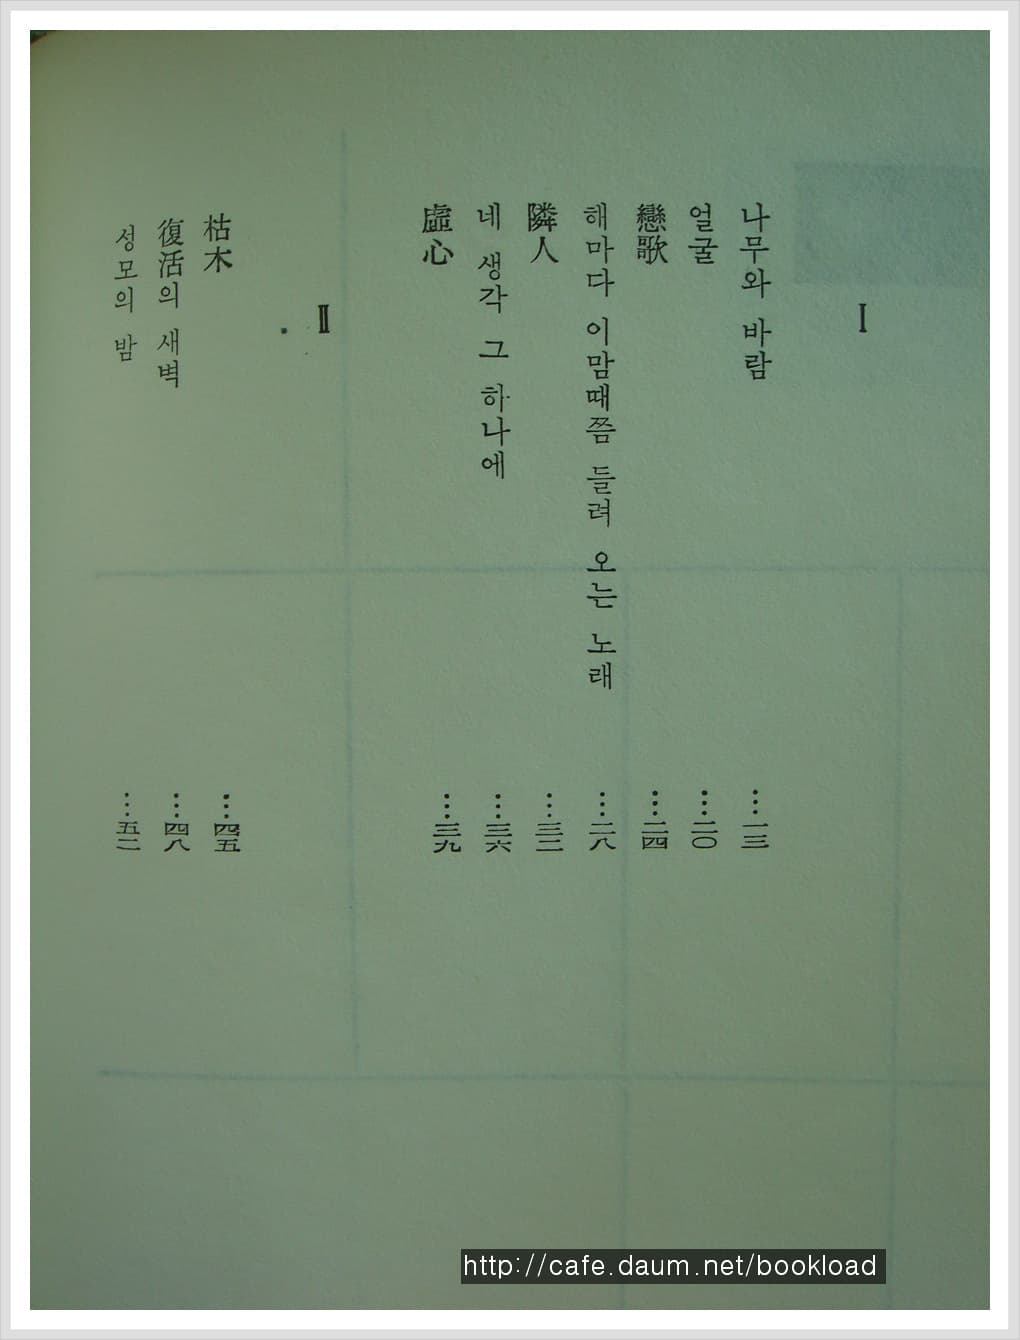 Ⅰ
나무와 바람 …一三
얼굴 …二〇
戀歌 …二四
해마다 이맘때쯤 들려 오는 노래 …二八
隣人 …三二
네 생각 그 하나에 …三六
虛心 …三九
Ⅱ
枯木 …四五
復活의 새벽 …四八
성모의 밤 …五二
http://cafe.daum.net/bookload